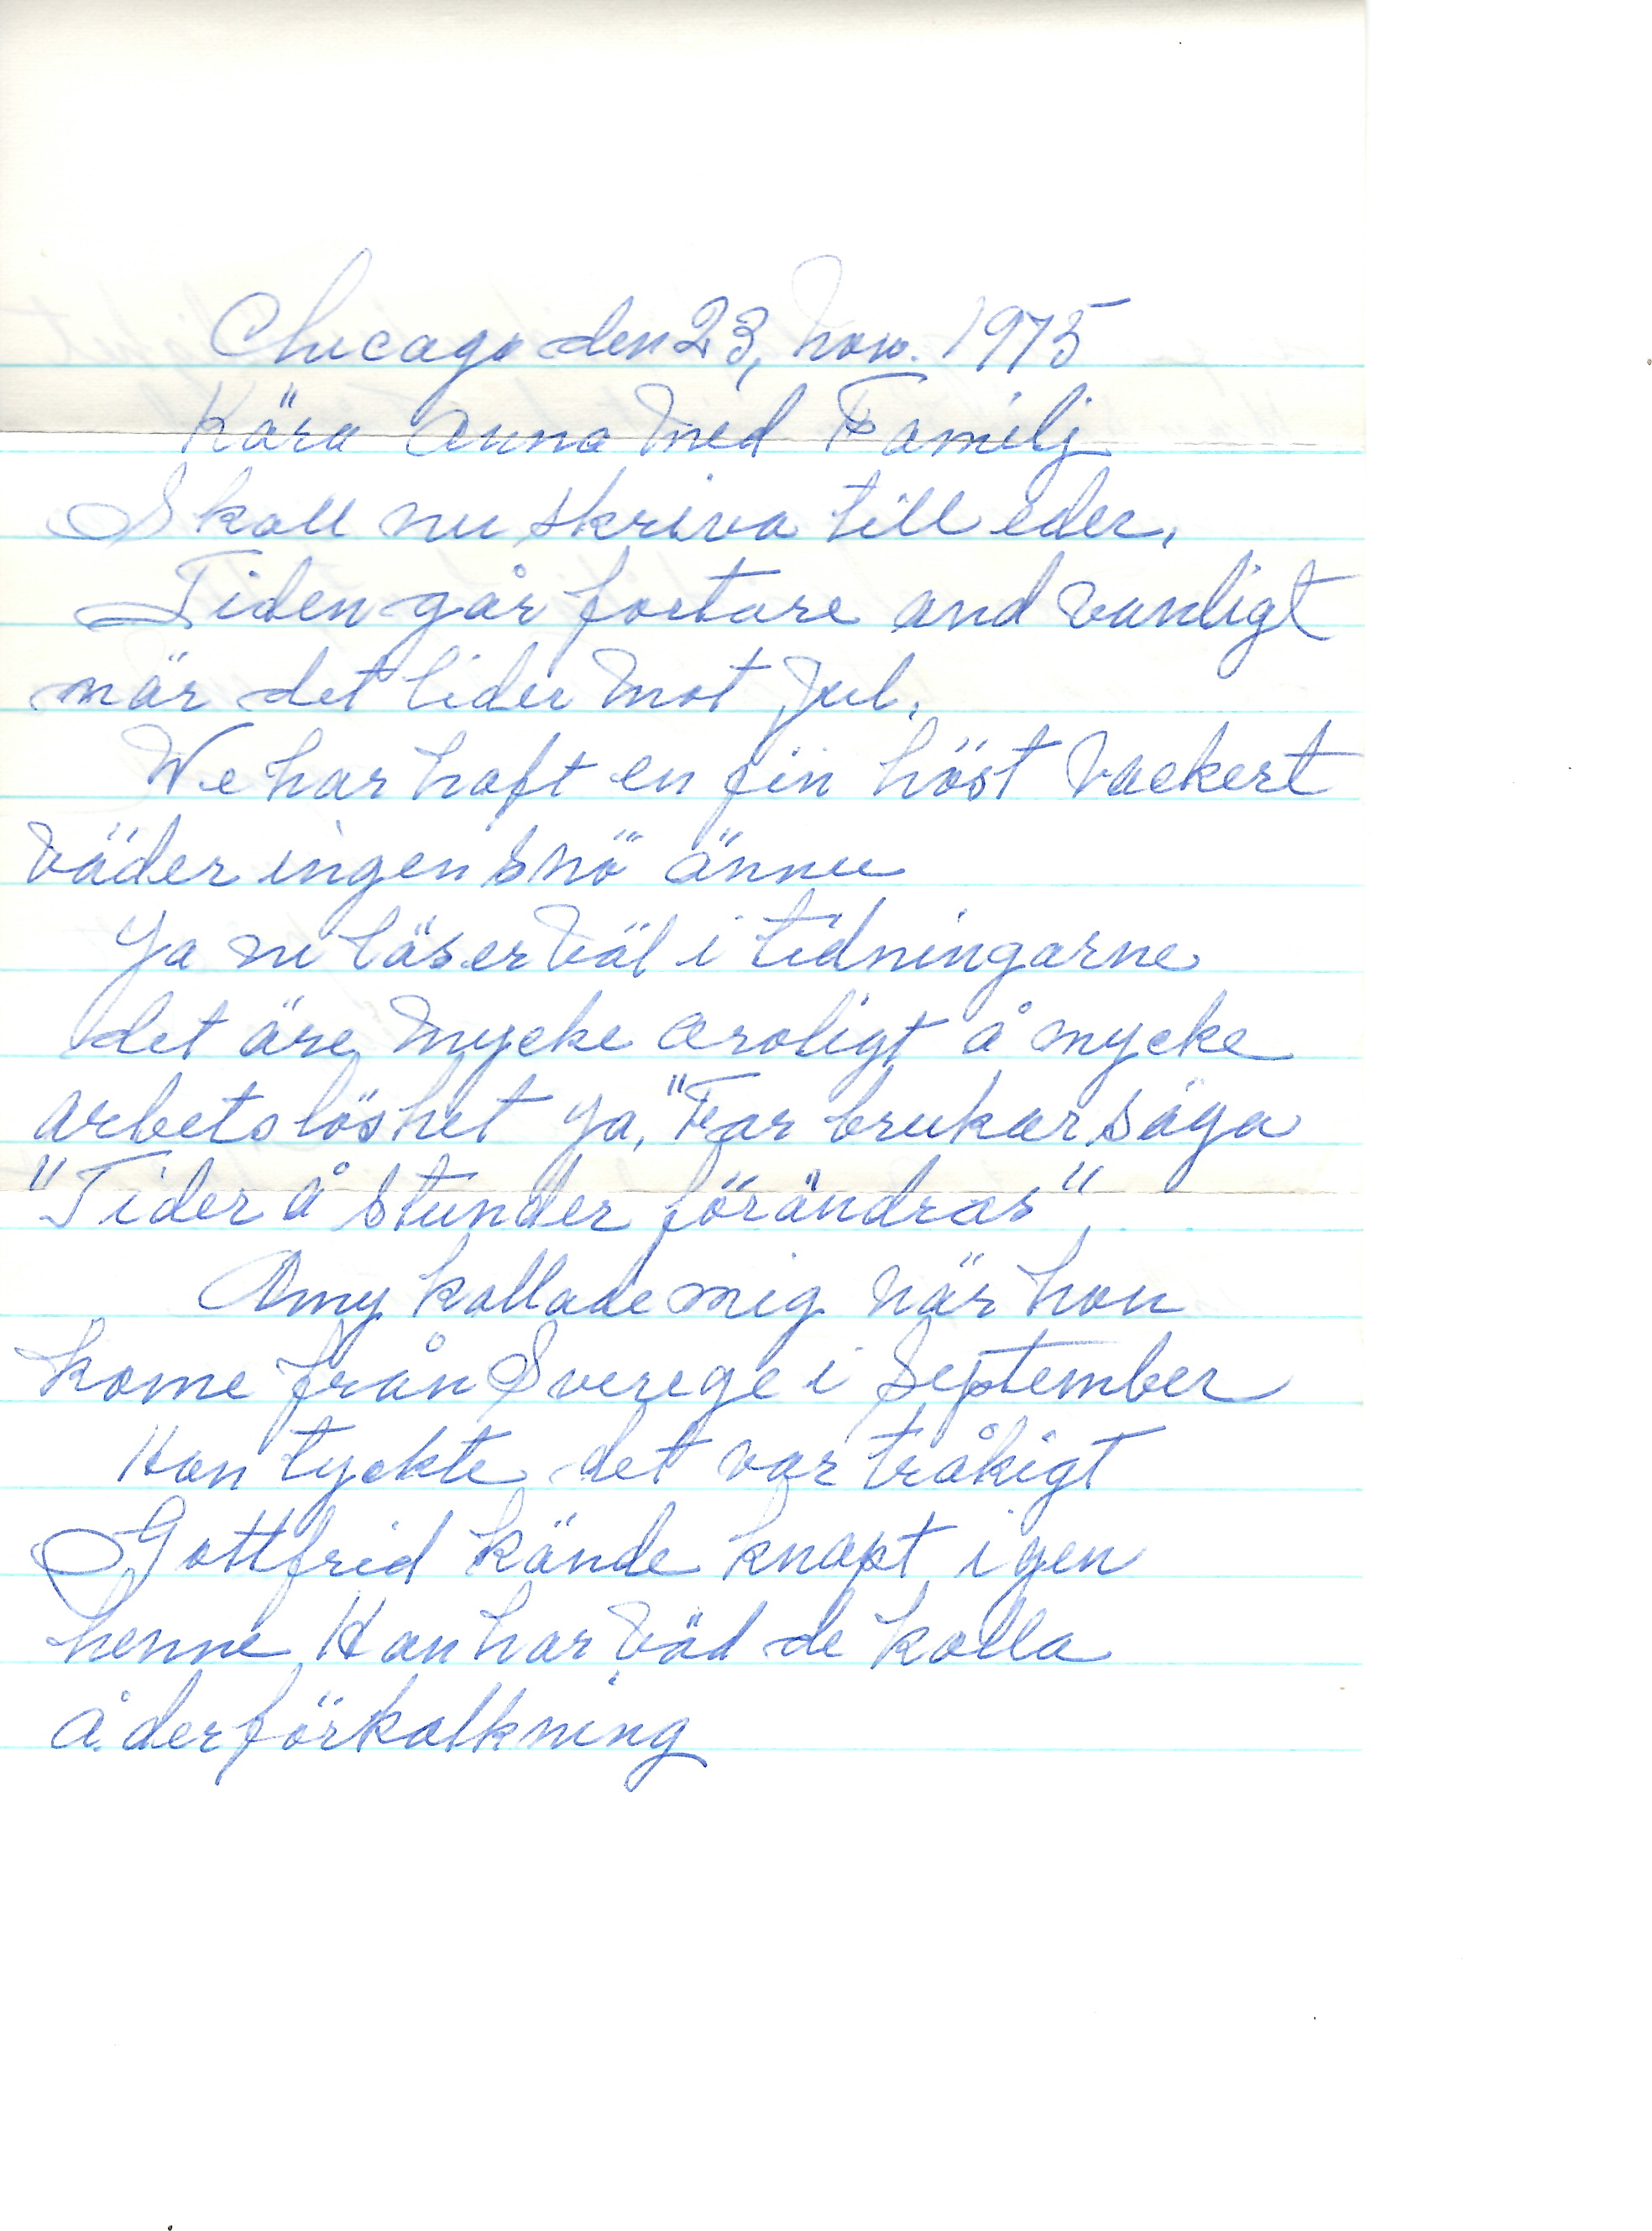 Chicago den 23, Nov. 1975
Kära Anna Med Familj
Skall nu skriva till eder,
Tiden går fortare and vanligt
när det lider mot Jul,
We har haft en fin höst Vackert
väder ingen snö ännu
Ja ni läser väl i tidningarne
det äre mycke oroligt å mycke
arbetslöshet Ja, "Far brukar säga
"Tider å stunder förändras"
Amy kallade mig när hon
kome från Sverege i September
Hon tyckte det var tråkigt
Gottfrid kände knapt igen
henne Han har väd de kalla
åderförkalkning